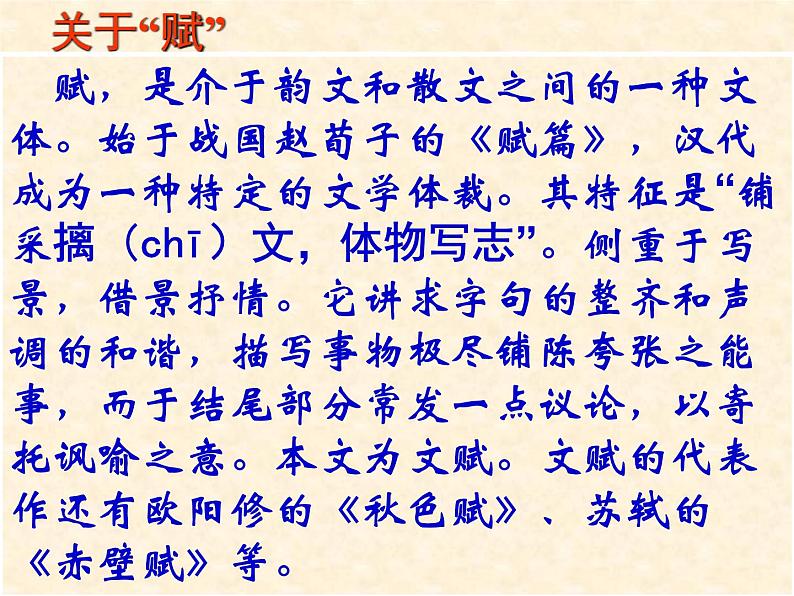 关于“赋”
赋，是介于韵文和散文之间的一种文
体。始于战国赵荀子的《赋篇》，汉代
成为一种特定的文学体裁。其特征是“铺
采摛（chī）文，体物写志”。侧重于写
景，借景抒情。它讲求字句的整齐和声
调的和谐，描写事物极尽铺陈夸张之能
事，而于结尾部分常发一点议论，以寄
托讽喻之意。本文为文赋。文赋的代表
作还有欧阳修的《秋色赋》、苏轼的
《赤壁赋》等。